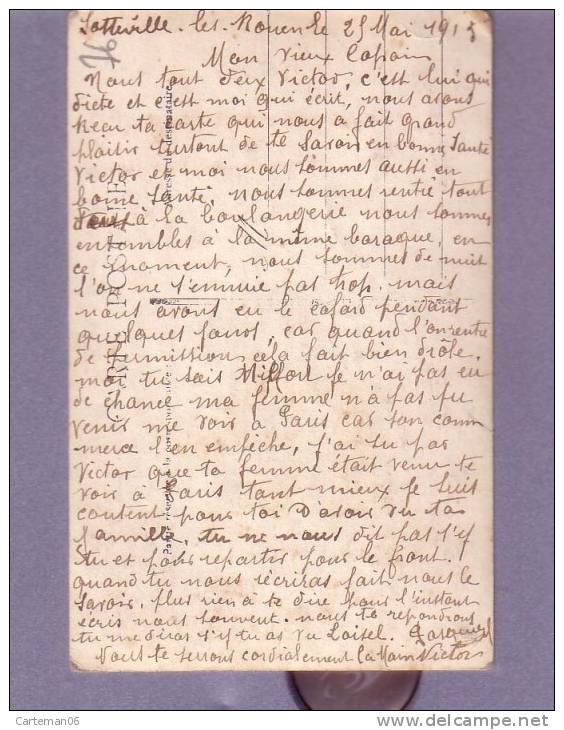 Sotteville-les-Rouen le 25 Mai 1915
76
Mon vieux Copain
Nous tout deux Victor, c'est lui qui
dicte et c'est moi qui écrit, nous avons
reçu ta carte qui nous a fait grand
plaisir surtout de te savoir en bonne santé
Victor et moi nous sommes aussi en
bonne santé, nous sommes rentré tout
deux à la boulangerie nous sommes
ensembles à la même baraque, en
ce moment, nous sommes de nuit
l'on ne s'ennuie pas trop. mais
nous avons eu le cafard pendant
quelques jours, car quand l'on rentre
de permissions cela fait bien drôle.
moi tu sais je n'ai pas eu
de chance ma femme n'a pas pu
venir me voir à Paris car son com
merce l'en empêche, j'ai su par
Victor que ta femme était venu te
voir à Paris tant mieux je suis
content pour toi d'avoir vu ta
famille, tu ne nous dit pas s'y
tu et pour repartir pour le front.
quand tu nous récriras fait nous le
savoir, plus rien à te dire pour l'instant
écris nous souvent. nous te repondrons
tu me diras s'y tu as vu Loisel.
Nous te serrons cordialement la Main Victor
CARTE POSTALE
Carteman06
www.delcampe.net